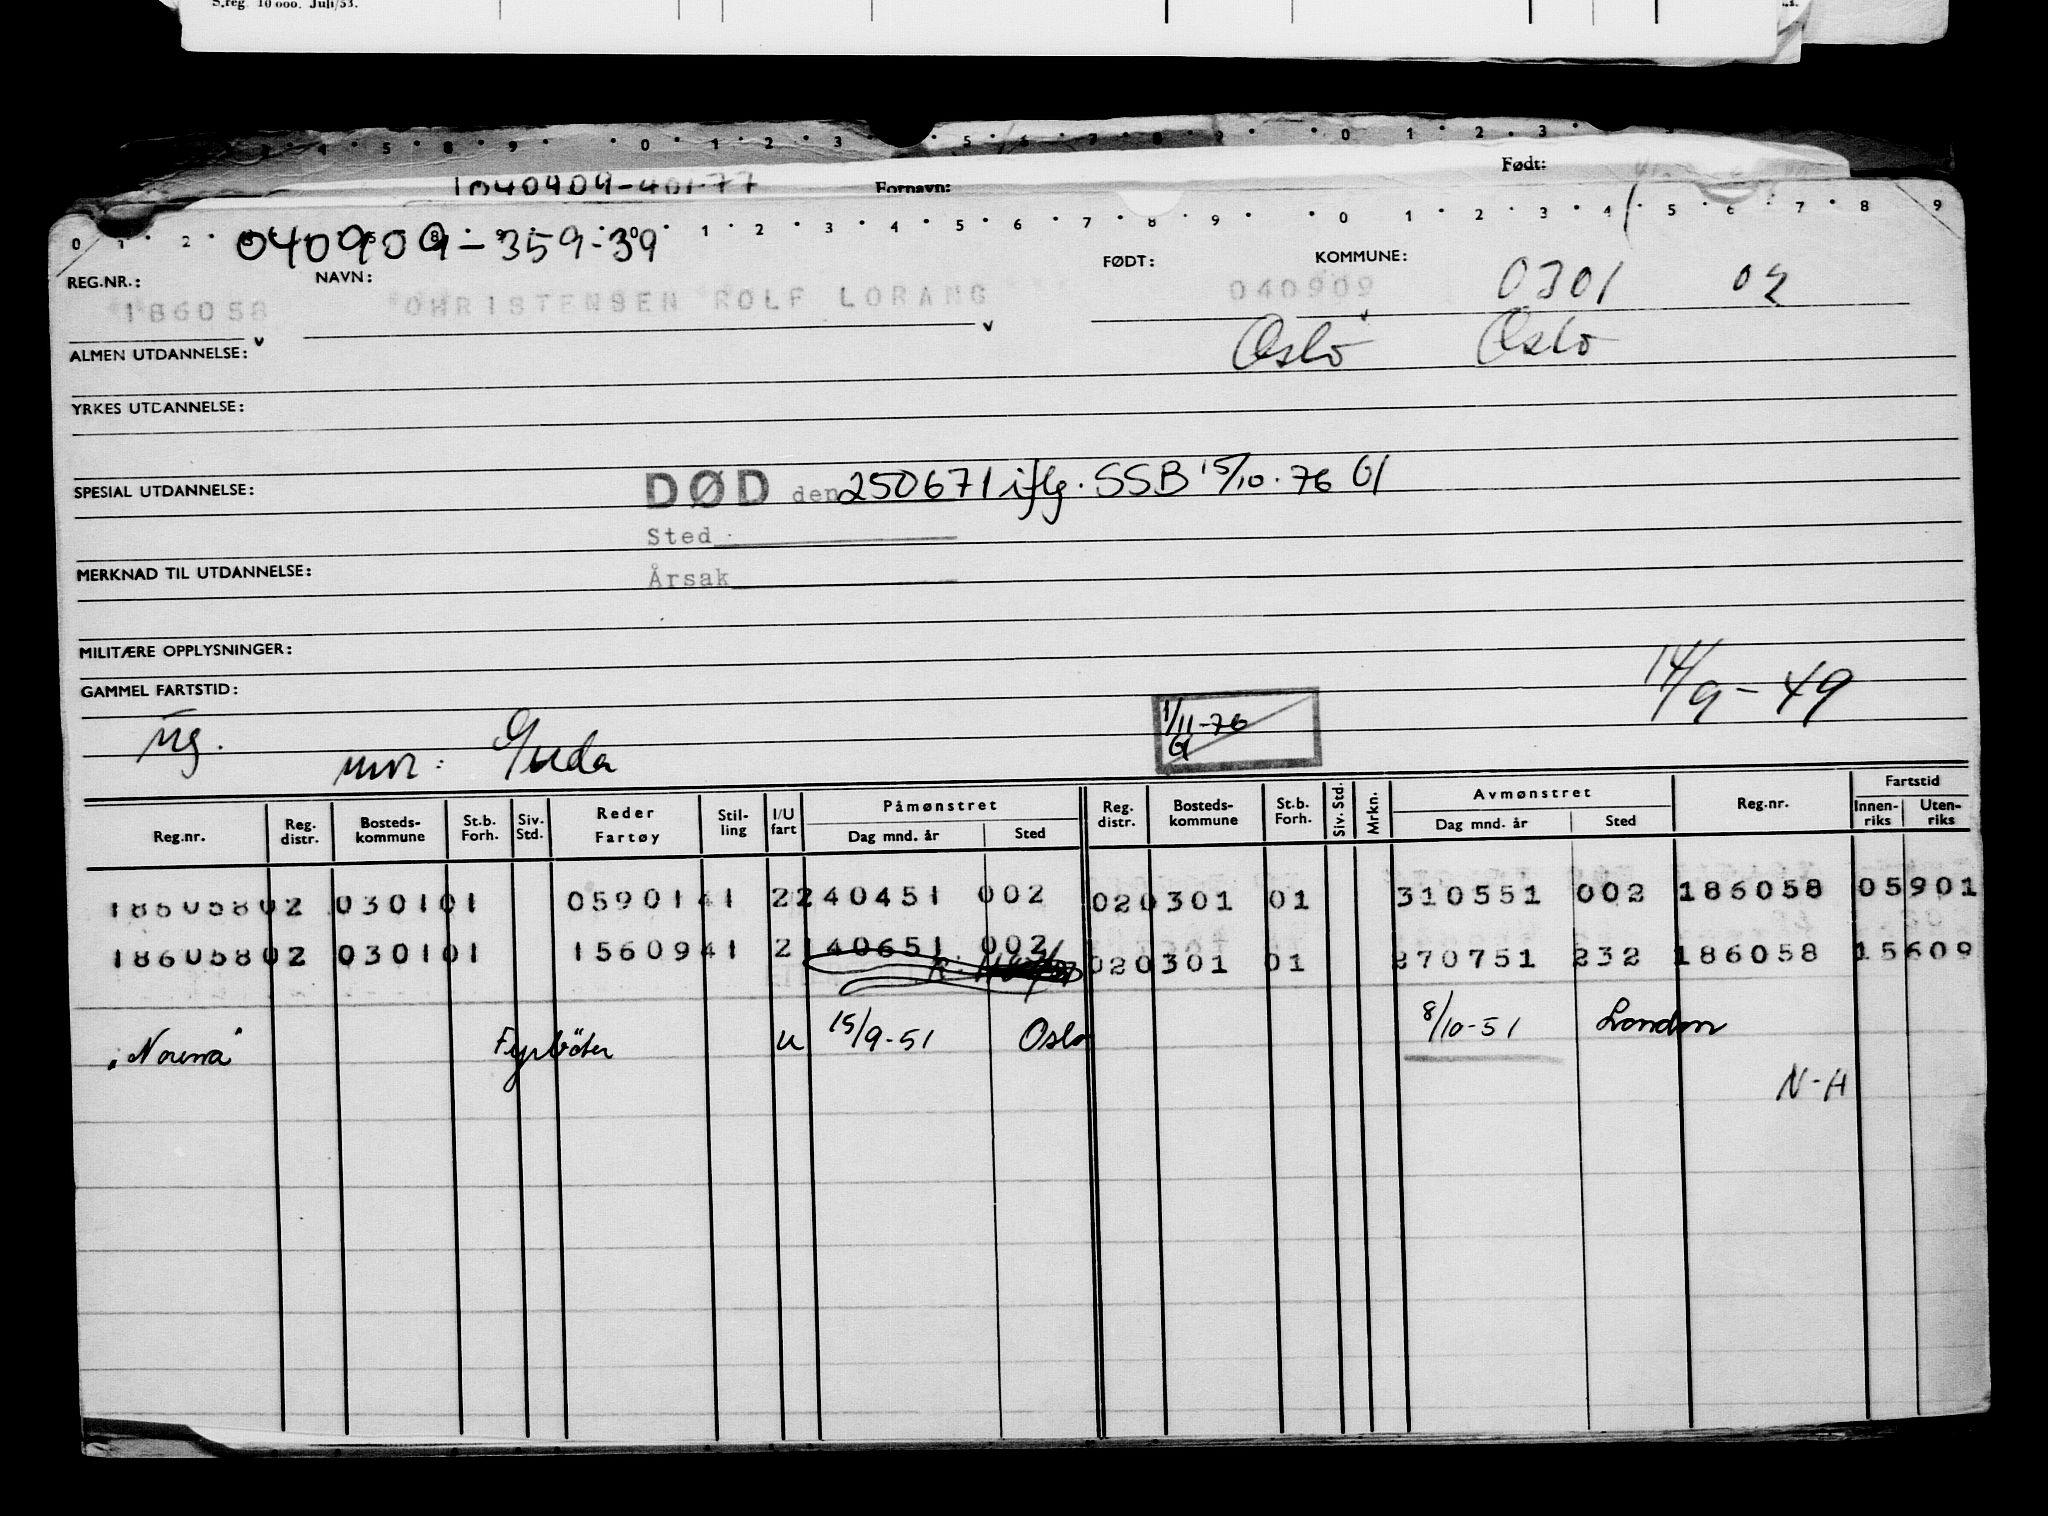 S.reg. 10 000. Juli/53.
Født:
Fornavn:
040909-359-39
REG.NR.: NAVN: FØDT: KOMMUNE:
186058 CHRISTENSEN ROLF LORANG 040909 0301 02
ALMEN UTDANNELSE: Oslo Oslo
YRKES UTDANNELSE:
SPESIAL UTDANNELSE: DØD den 250671 iflg. SSB 15/10.76 Gl
Sted
MERKNAD TIL UTDANNELSE: Årsak
MILITÆRE OPPLYSNINGER:
GAMMEL FARTSTID: 14/9-49
ug. mor: Guda 1/11-76
Gl
Reg.nr. Reg. distr. Bosteds-kommune St.b. Forh. Siv. Std. Reder Fartøy Stil-ling I/U fart Påmønstret Dag mnd. år Sted Reg. distr. Bosteds-kommune St.b. Forh. Siv. Std. Mrkn. Avmønstret Dag mnd. år Sted Reg.nr. Fartstid Innen-riks Uten-riks
186058 02 0301 01 05901 41 2 240451 002 02 0301 01 310551 002 186058 05901
186058 02 0301 01 15609 41 2 140651 002 02 0301 01 270751 232 186058 15609
Fyrbøter u 15/9-51 Oslo 8/10-51 London
N-H